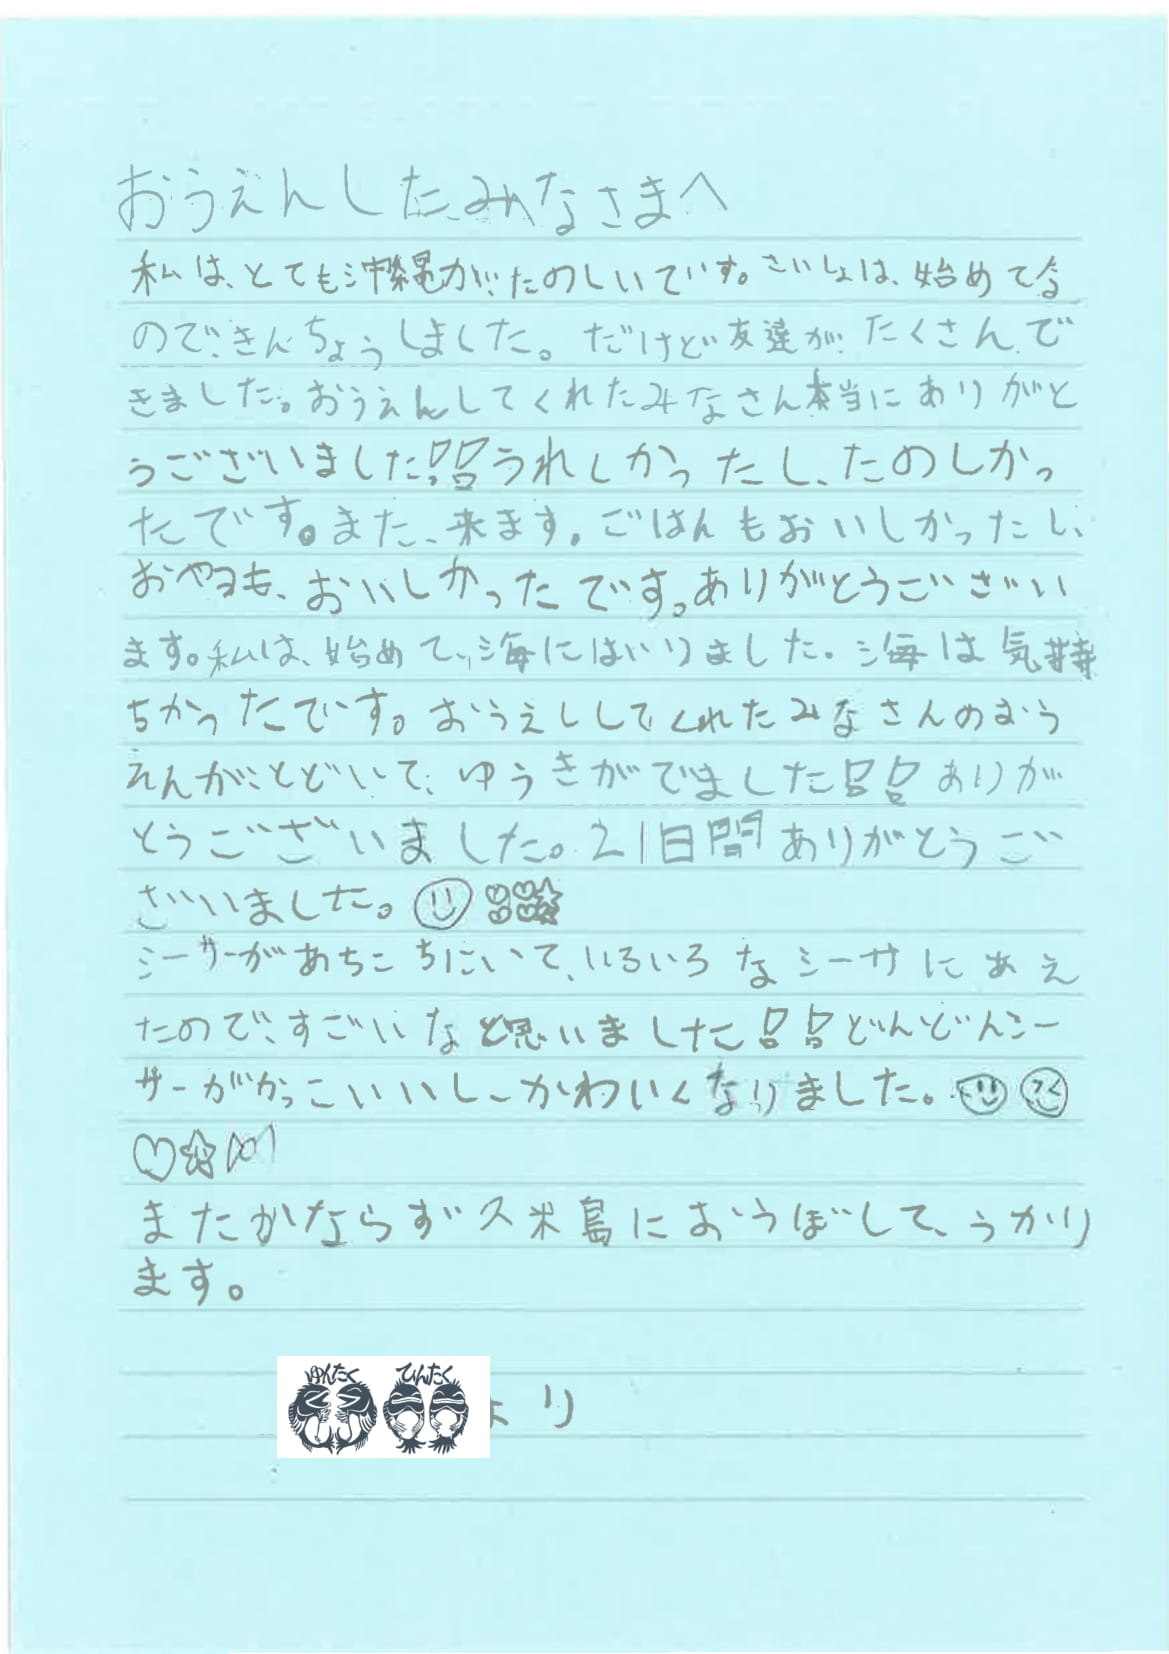 おうえんしたみなさまへ
私は、とても沖縄が、たのしいです。さいしょは、始めてな
ので、きんちょうしました。だけど友達が、たくさんで
きました。おうえんしてくれたみなさん本当にありがと
うございました!!うれしかったし、たのしかっ
たです。また、来ます。ごはんもおいしかったし、
おやつも、おいしかったです。ありがとうござい
ます。私は、始めて、海にはいりました。海は気持
ちかったです。おうえんしてくれたみなさんのおう
えんがとどいて、ゆうきがでました!!ありが
とうございました。21日間ありがとうご
ざいました。
シーサーがあちこちにいて、いろいろなシーサにあえ
たので、すごいなと思いました!!どんどんシー
サーがかっこいいし、かわいくなりました。
またかならず久米島におうぼして、うかり
ます。
ゆんたく ひんたく より